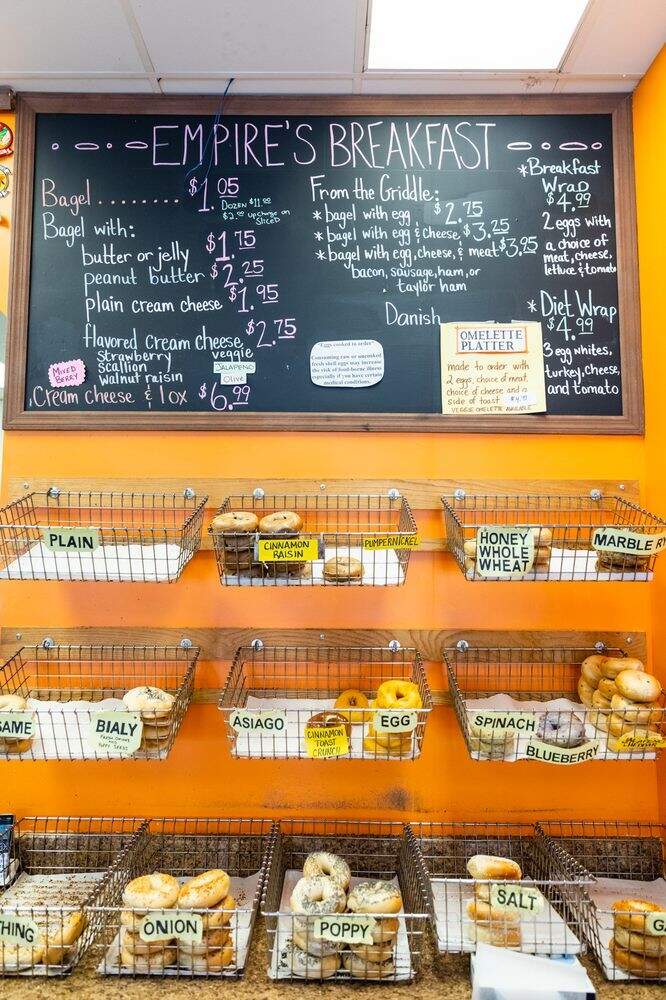 EMPIRE'S BREAKFAST
Bagel ........ $1.05
DOZEN $11.00
$2.00 upcharge on
SLICED
Bagel with:
butter or jelly $1.75
peanut butter $2.25
plain cream cheese $1.95
flavored cream cheese $2.75
strawberry veggie
scallion JALAPEÑO
walnut raisin OLIVE
MIXED
BERRY
Cream cheese & lox $6.99
From the Griddle:
*bagel with egg $2.75
*bagel with egg & cheese $3.25
*bagel with egg, cheese, & meat $3.95
bacon, sausage, ham, or
taylor ham
Danish
"Eggs cooked to order"
Consuming raw or uncooked
fresh shell eggs may increase
the risk of food-borne illness
especially if you have certain
medical conditions.
OMELETTE
PLATTER
made to order with
2 eggs, choice of meat,
choice of cheese and a
side of toast
VEGGIE OMELETTE AVAILABLE
*Breakfast
Wrap
$4.99
2 eggs with
a choice of
meat, cheese,
lettuce & tomato
*Diet Wrap
$4.99
3 egg whites,
turkey, cheese,
and tomato
PLAIN
CINNAMON
RAISIN
PUMPERNICKEL
HONEY
WHOLE
WHEAT
MARBLE RY
SAME
BIALY
ASIAGO
CINNAMON
TOAST
CRUNCH
EGG
SPINACH
BLUEBERRY
THING
ONION
POPPY
SALT
GA